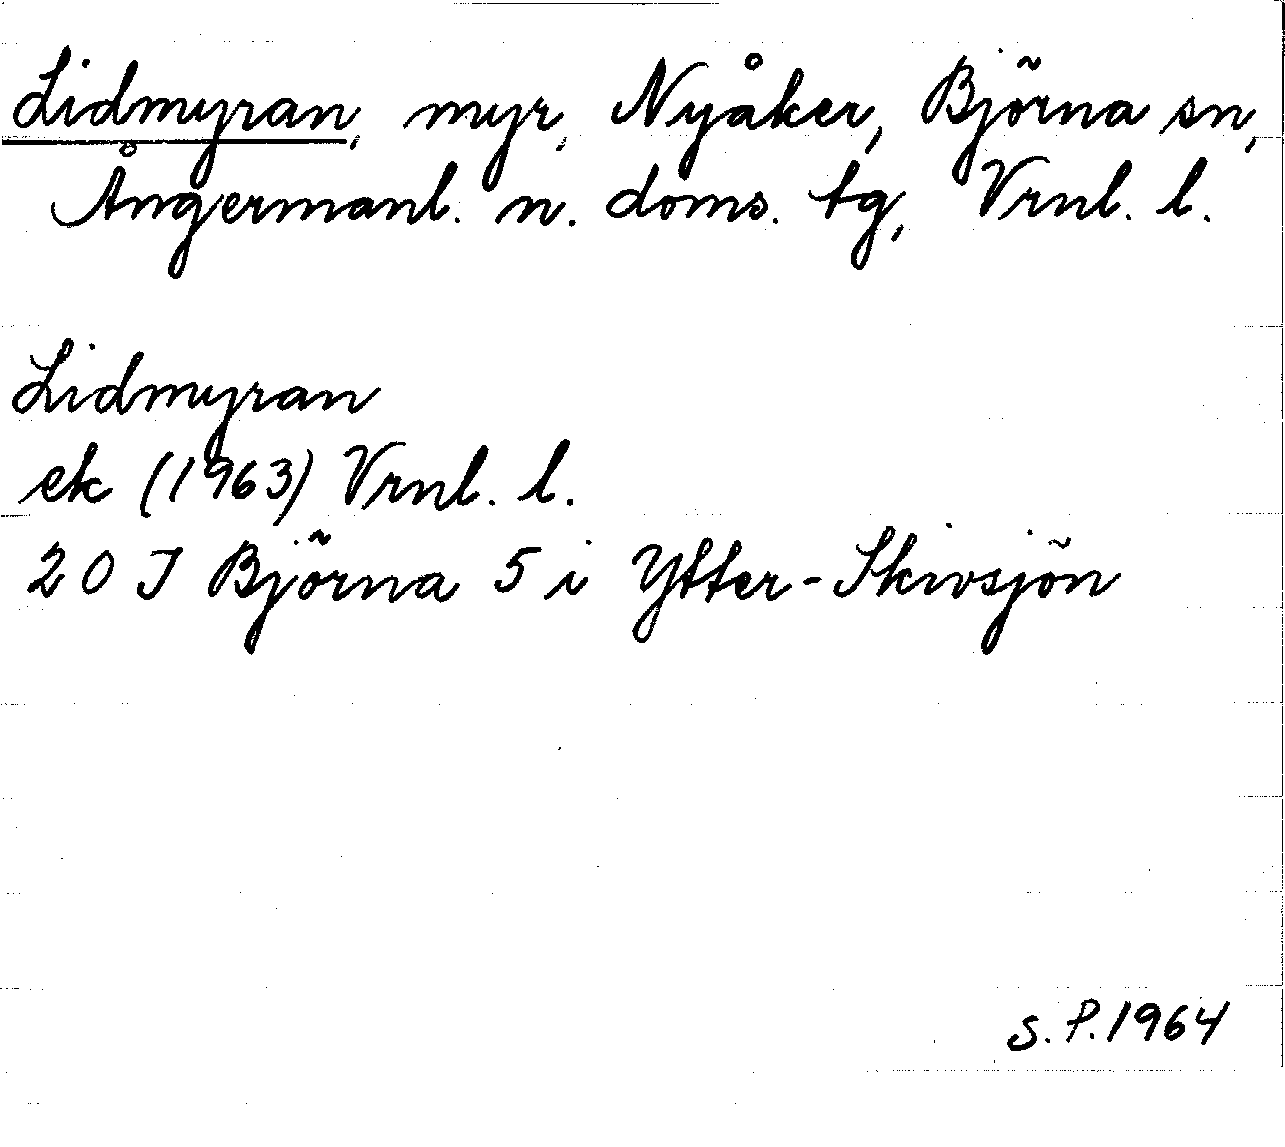 Lidmyran, myr, Nyåker, Björna sn,
Ångermanl. n. doms. tg, Vrnl. l.
Lidmyran
ek (1963) Vrnl. l.
20 J Björna 5 i Ytter-Skivsjön
S.P.1964